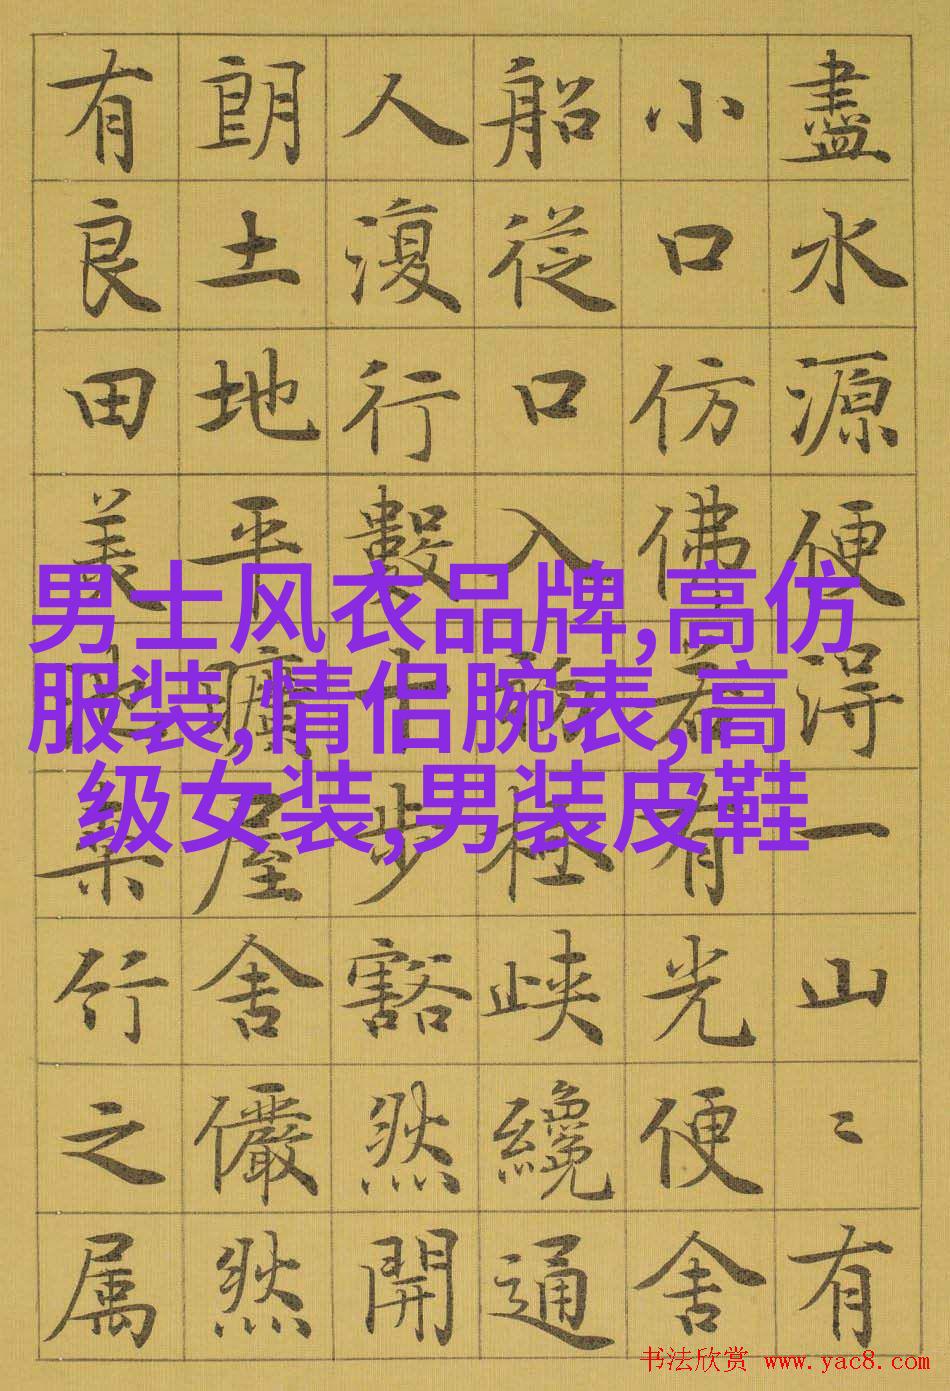 盡水源便得一山〻有
小口仿佛若有光便舍
船從口入初極峽纔通
人復行數十步豁然開
朗土地平曠屋舍儼然
有良田美池桑竹之属
男士风衣品牌,高仿
服装,情侣腕表,高
级女装,男装皮鞋
书法欣赏 www.yac8.com